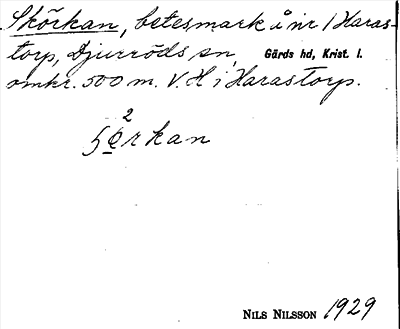 Skörkan, betesmark å nr 1 Haras-
torp, Djurröds sn, Gärds hd, Krist. l.
omkr. 500 m. V. H i Harastorp.
2
rkan
NILS NILSSON 1929